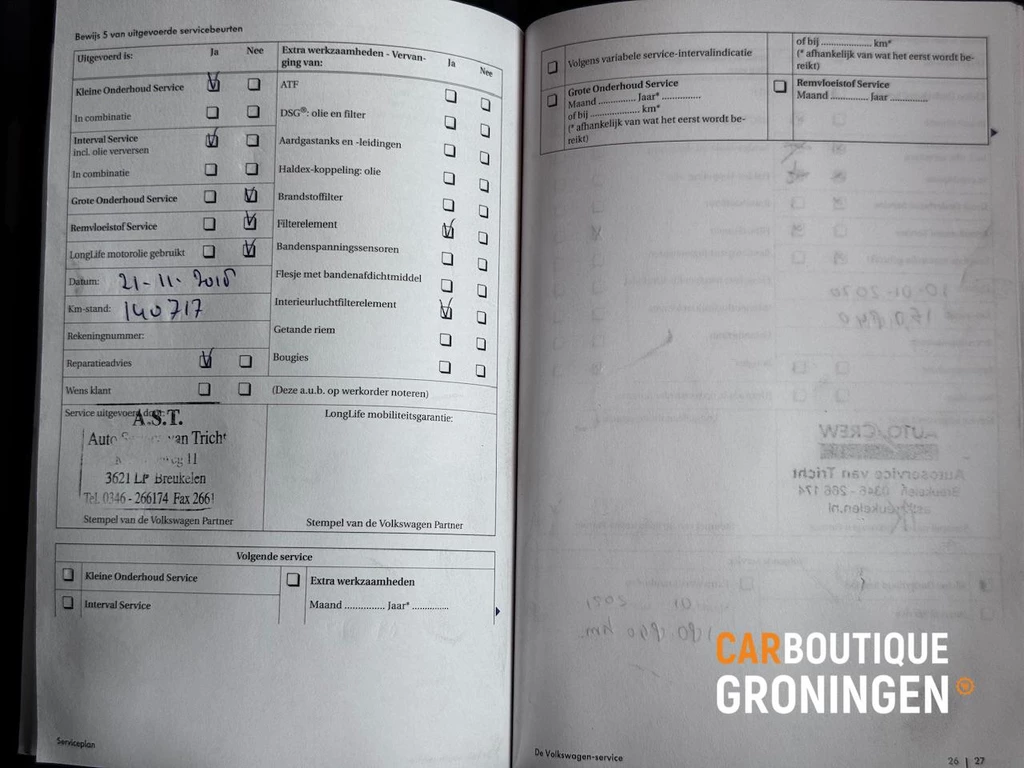 Bewijs 5 van uitgevoerde servicebeurten
Uitgevoerd is: Ja Nee
Kleine Onderhoud Service
In combinatie
Interval Service
incl. olie verversen
In combinatie
Grote Onderhoud Service
Remvloeistof Service
LongLife motorolie gebruikt
Datum: 21-11-2018
Km-stand: 140717
Rekeningnummer:
Reparatieadvies
Wens klant
Extra werkzaamheden - Vervan-
ging van: Ja Nee
ATF
DSG®: olie en filter
Aardgastanks en -leidingen
Haldex-koppeling: olie
Brandstoffilter
Filterelement
Bandenspanningssensoren
Flesje met bandenafdichtmiddel
Interieurluchtfilterelement
Getande riem
Bougies
(Deze a.u.b. op werkorder noteren)
Service uitgevoerd door:
A.S.T.
Auto van Tricht
11
3621 LP Breukelen
Tel. 0346 - 266174 Fax 2661
Stempel van de Volkswagen Partner
LongLife mobiliteitsgarantie:
Stempel van de Volkswagen Partner
Volgende service
Kleine Onderhoud Service
Interval Service
Extra werkzaamheden
Maand ............... Jaar* ...............
Serviceplan
Volgens variabele service-intervalindicatie
of bij .................. km*
(* afhankelijk van wat het eerst wordt be-
reikt)
Grote Onderhoud Service
Maand .............. Jaar* ..............
of bij .................. km*
(* afhankelijk van wat het eerst wordt be-
reikt)
Remvloeistof Service
Maand .............. Jaar ..............
CARBOUTIQUE
GRONINGEN
De Volkswagen-service
26 | 27